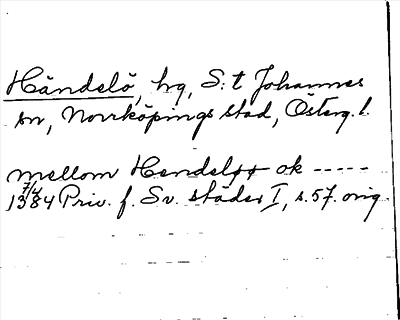 Händelö, hg, S:t Johannes
sn, Norrköpings stad, Österg. l.
mellom Hendeløø ok -----
7/4 1384 Priv. f. Sv. städer I, s. 57. orig.